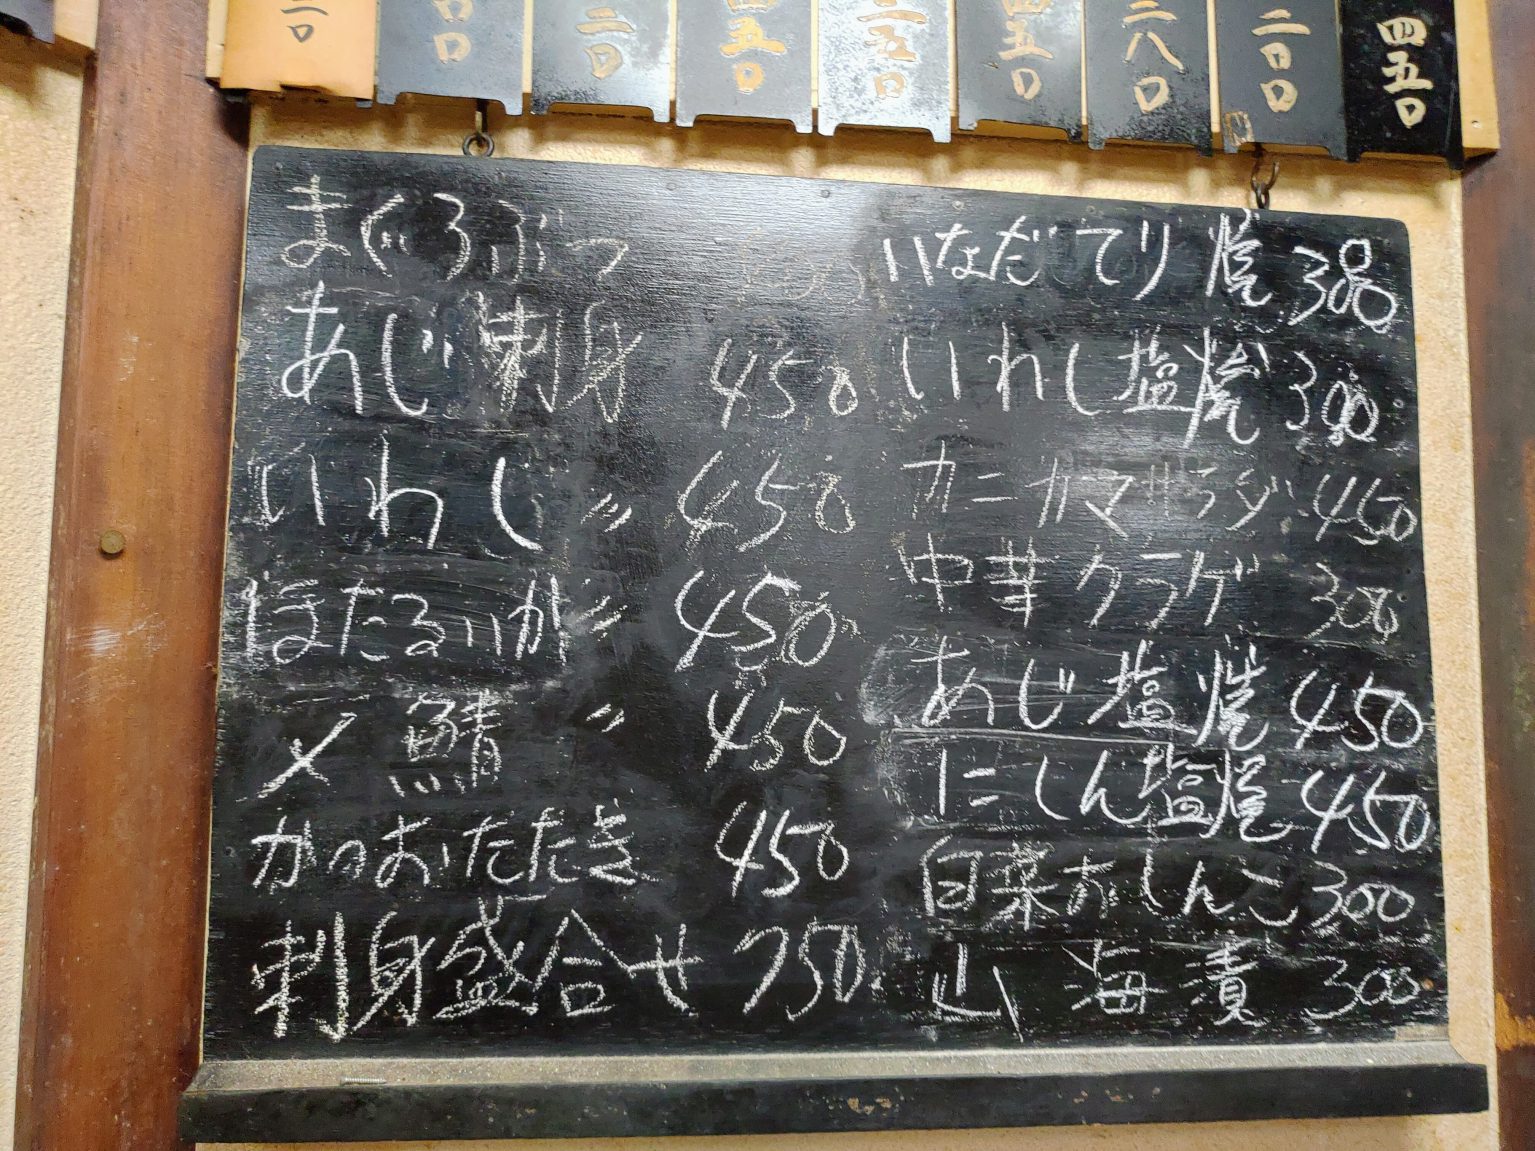 二〇
〇〇
二〇
四五〇
三五〇
四五〇
二八〇
二〇〇
四五〇
まぐろぶつ
あじ刺身 450
いわし 〃 450
ほたるいか 〃 450
〆鯖 〃 450
かつおたたき 450
刺身盛合せ 750
いなだてり焼 300
いわし塩焼 300
カニカマサラダ 450
中華クラゲ 300
あじ塩焼 450
にしん塩焼 450
白菜おしんこ 300
山海漬 300